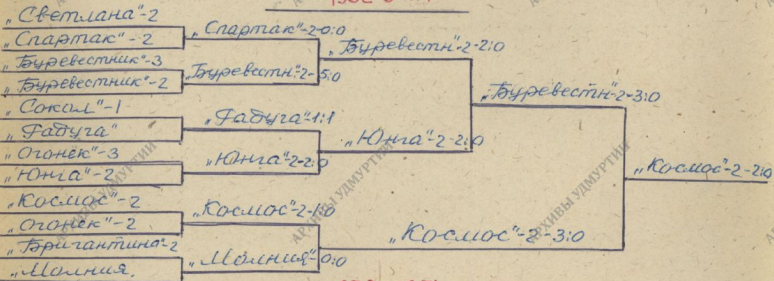 „Светлана"-2
„Спартак"-2
„Буревестник"-3
„Буревестник"-2
„Сокол"-1
„Радуга"
„Огонек"-3
„Юнга"-2
„Космос"-2
„Огонек"-2
„Бригантина"-2
„Молния.
„Спартак"-2-0:0
„Буревестн"-2-5:0
„Радуга"1:1
„Юнга"-2-2:0
„Космос"-2-1:0
„Молния"-0:0
„Буревестн"-2-2:0
„Юнга"-2-2:0
„Космос"-2-3:0
„Буревестн"-2-3:0
„Космос"-2-2:0
АРХИВЫ УДМУРТИИ
АРХИВЫ УДМУРТИИ
АРХИВЫ УДМУРТИИ